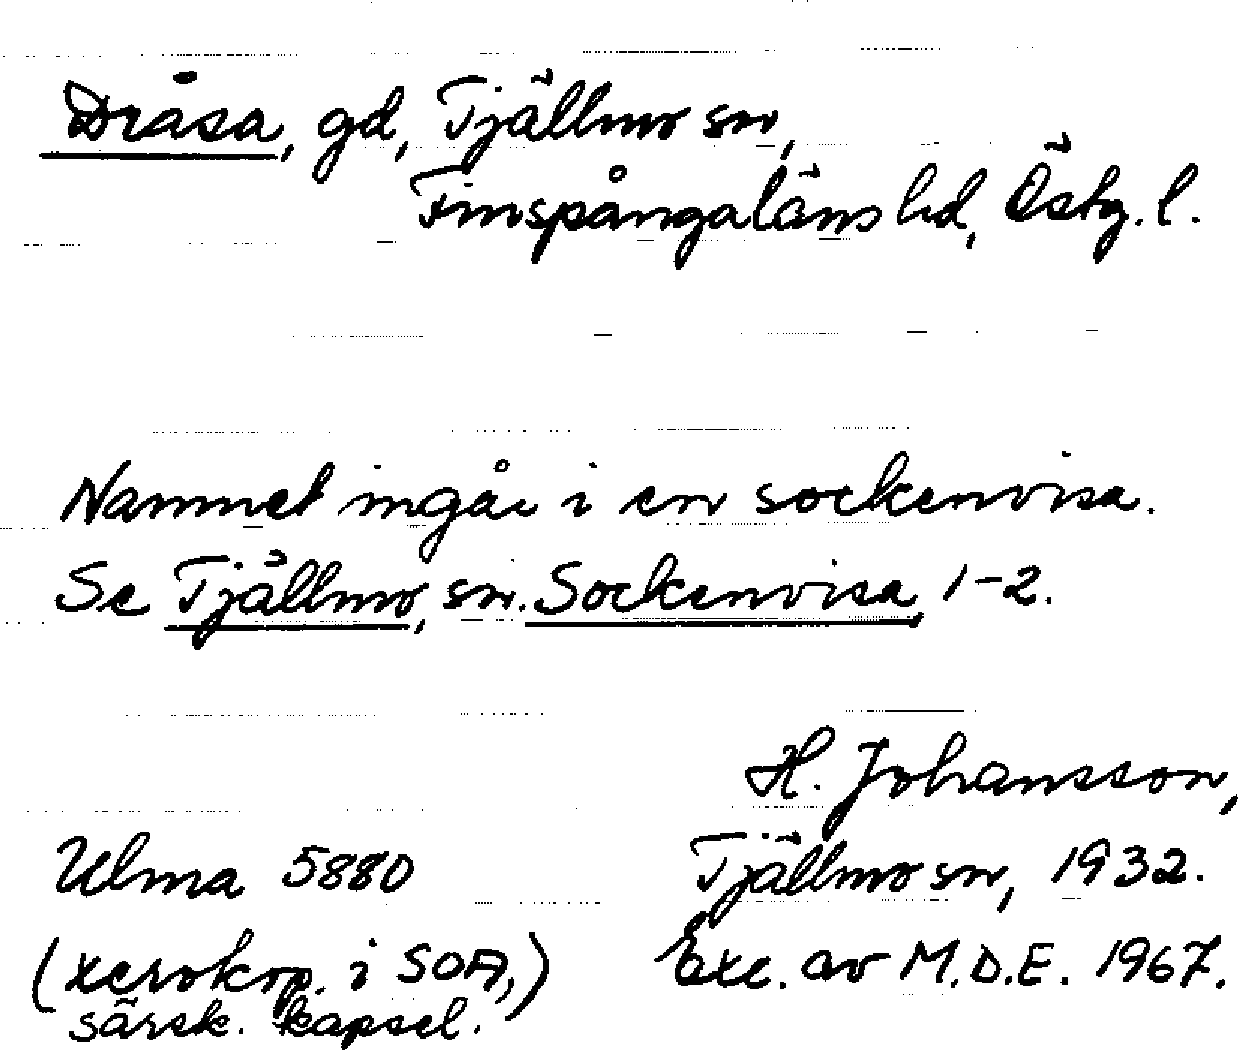 Dråsa, gd, Tjällmo sn,
Finspångaläns hd, Östg. l.
Namnet ingår i en sockenvisa.
Se Tjällmo, sn. Sockenvisa, 1-2.
H. Johansson,
Ulma 5880 Tjällmo sn, 1932.
(xerokop. i SOA, Exc. av M.D.E. 1967.
särsk. kapsel.)